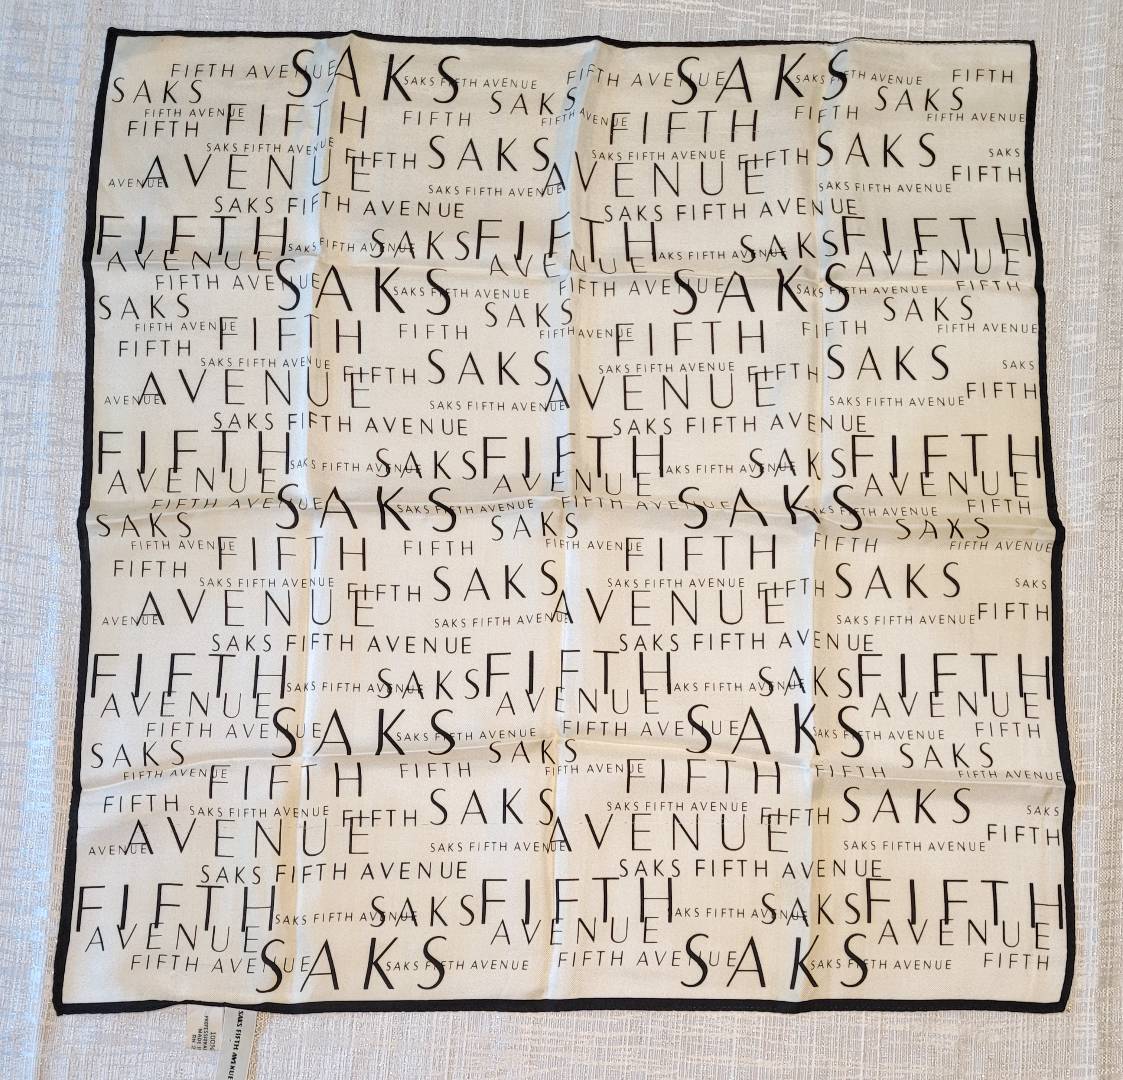 FIFTH AVENUE SAKS SAKS FIFTH AVENUE FIFTH AVENUE SAKS SAKS FIFTH AVENUE FIFTH
SAKS SAKS SAKS
FIFTH AVENUE FIFTH FIFTH FIFTH AVENUE FIFTH FIFTH FIFTH AVENUE
FIFTH
SAKS FIFTH AVENUE FIFTH SAKS SAKS FIFTH AVENUE FIFTH SAKS SAKS
AVENUE AVENUE SAKS FIFTH AVENUE AVENUE SAKS FIFTH AVENUE FIFTH
SAKS FIFTH AVENUE SAKS FIFTH AVENUE
FIFTH SAKS FIFTH AVENUE SAKS FIFTH SAKS FIFTH AVENUE SAKS FIFTH
AVENUE AVENUE AVENUE
FIFTH AVENUE SAKS SAKS FIFTH AVENUE FIFTH AVENUE SAKS SAKS FIFTH AVENUE FIFTH
SAKS SAKS SAKS
FIFTH AVENUE FIFTH FIFTH FIFTH AVENUE FIFTH FIFTH FIFTH AVENUE
FIFTH
SAKS FIFTH AVENUE FIFTH SAKS SAKS FIFTH AVENUE FIFTH SAKS SAKS
AVENUE AVENUE SAKS FIFTH AVENUE AVENUE SAKS FIFTH AVENUE FIFTH
SAKS FIFTH AVENUE SAKS FIFTH AVENUE
FIFTH SAKS FIFTH AVENUE SAKS FIFTH AKS FIFTH AVENUE SAKS FIFTH
AVENUE AVENUE AVENUE
FIFTH AVENUE SAKS SAKS FIFTH AVENUE FIFTH AVENUE SAKS SAKS FIFTH AVENUE FIFTH
SAKS SAKS SAKS
FIFTH AVENUE FIFTH FIFTH FIFTH AVENUE FIFTH FIFTH FIFTH AVENUE
FIFTH
SAKS FIFTH AVENUE FIFTH SAKS SAKS FIFTH AVENUE FIFTH SAKS SAKS
AVENUE AVENUE SAKS FIFTH AVENUE AVENUE SAKS FIFTH AVENUE FIFTH
SAKS FIFTH AVENUE SAKS FIFTH AVENUE
FIFTH SAKS FIFTH AVENUE SAKS FIFTH AKS FIFTH AVENUE SAKS FIFTH
AVENUE AVENUE AVENUE
FIFTH AVENUE SAKS SAKS FIFTH AVENUE FIFTH AVENUE SAKS SAKS FIFTH AVENUE FIFTH
SAKS SAKS SAKS
FIFTH AVENUE FIFTH FIFTH FIFTH AVENUE FIFTH FIFTH FIFTH AVENUE
FIFTH
SAKS FIFTH AVENUE FIFTH SAKS SAKS FIFTH AVENUE FIFTH SAKS SAKS
AVENUE AVENUE SAKS FIFTH AVENUE AVENUE SAKS FIFTH AVENUE FIFTH
SAKS FIFTH AVENUE SAKS FIFTH AVENUE
FIFTH SAKS FIFTH AVENUE SAKS FIFTH AKS FIFTH AVENUE SAKS FIFTH
AVENUE AVENUE AVENUE
FIFTH AVENUE SAKS SAKS FIFTH AVENUE FIFTH AVENUE SAKS SAKS FIFTH AVENUE FIFTH
SAKS FIFTH AVENUE
100%